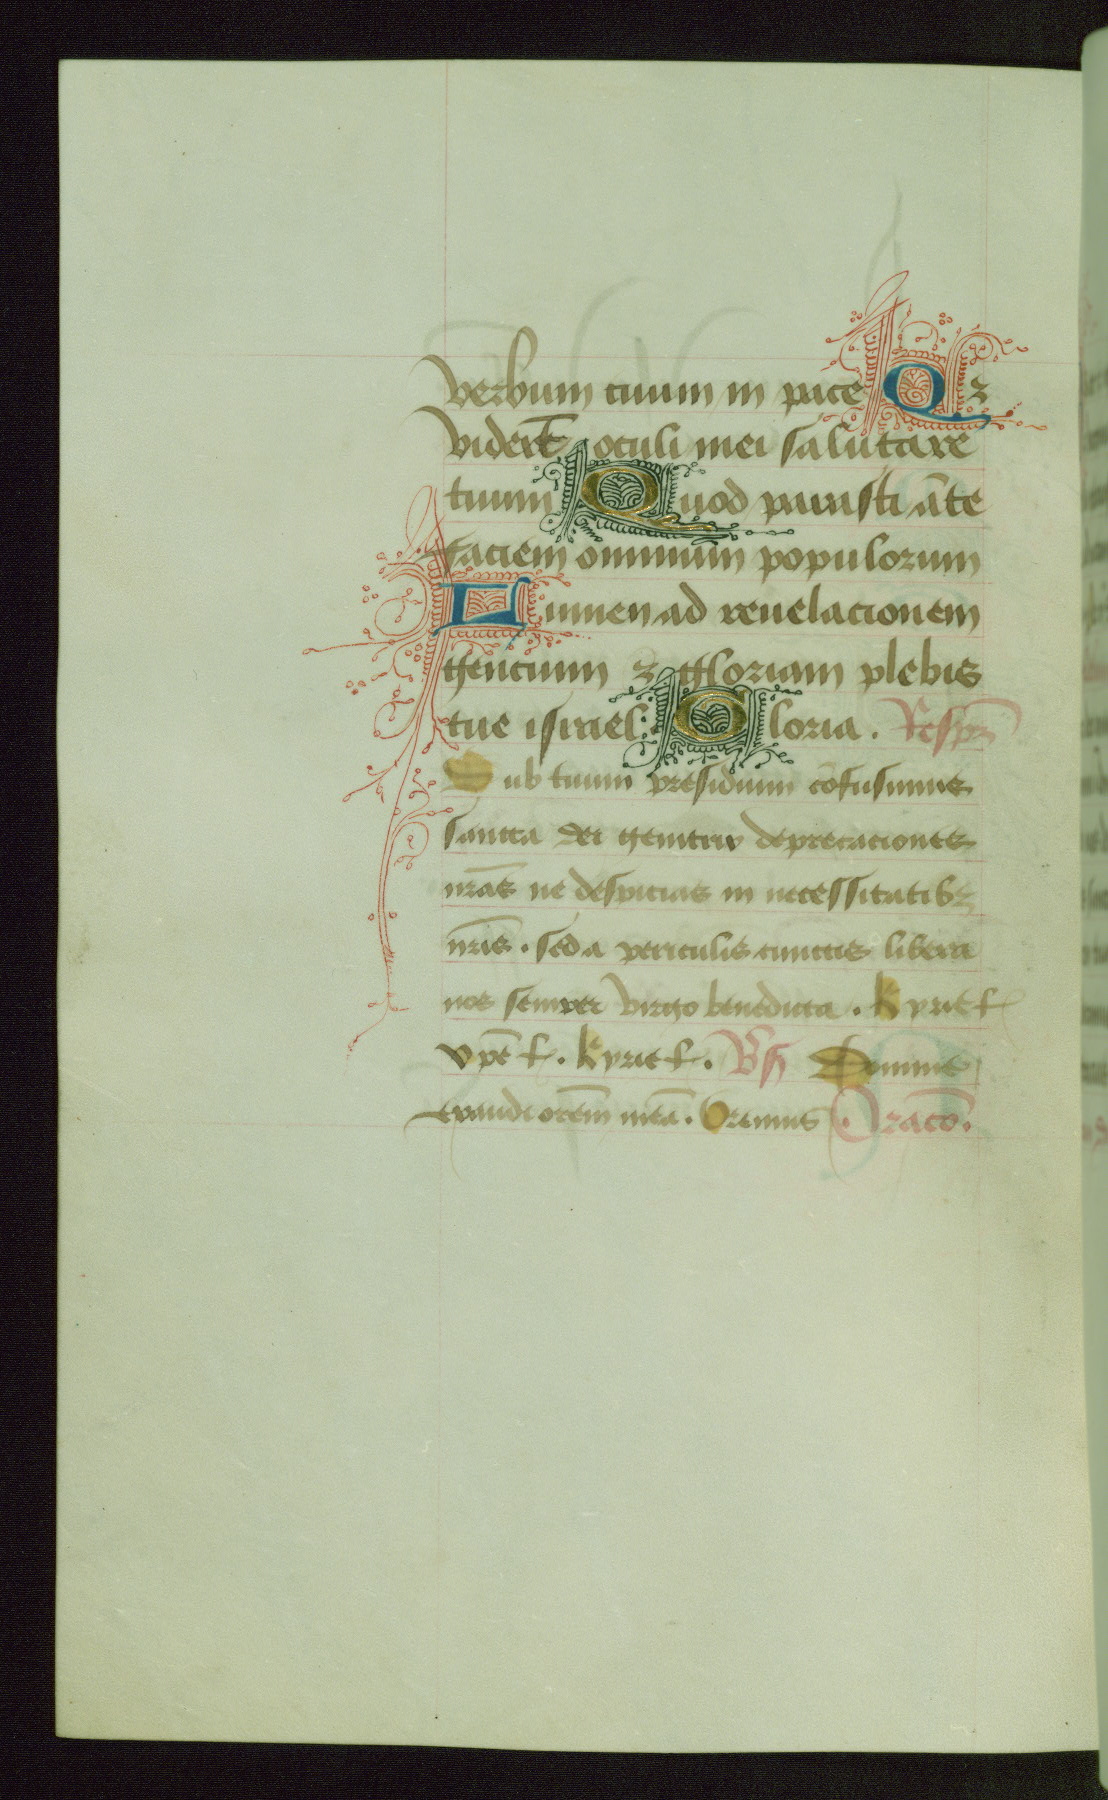 verbum tuum in pace Qꝫ
viderūt oculi mei salutare
tuum Quod parasti āte
faciem omnium populorum
Lumen ad reuelacionem
gencium ꝫ gloriam plebis
tue israel: Gloria. Respm̄
Sub tuum presidium cōfugimus
sancta dei genitrix deprecaciones
nr̄as ne despicias in necessitatibꝫ
nr̄is . sed a periculis cunctis libera
nos semper virgo benedicta . kyriel̵
xpēl̵. kyriel̵. Vs̄ Domine
exaudi orēm meā. Oremus . Oracō.